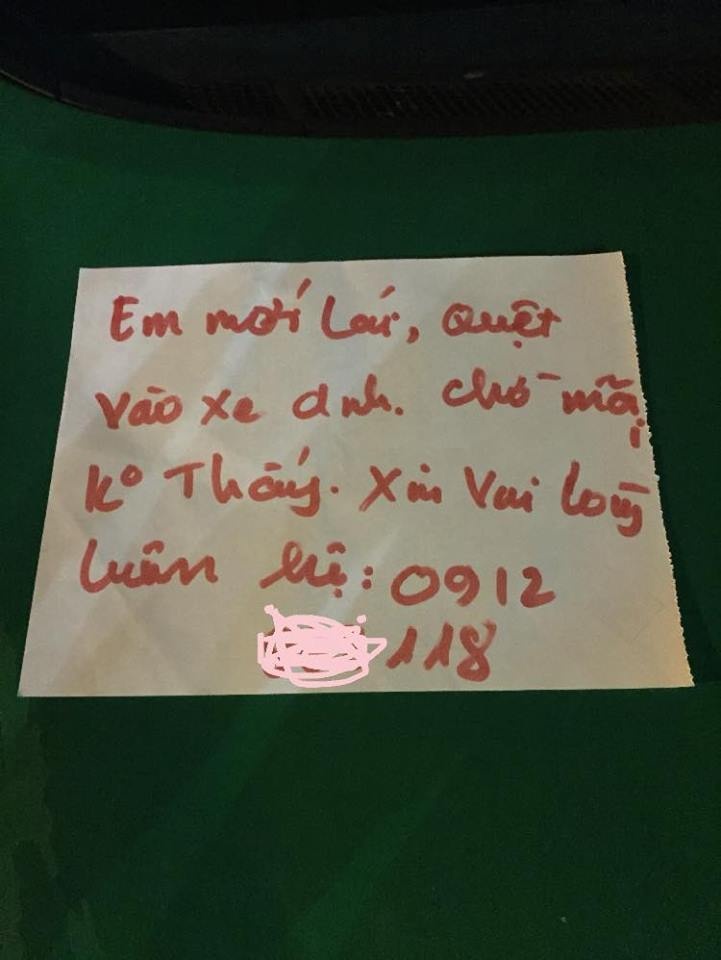 Em mới Lái, quệt
vào xe anh. chờ mãi
ko Thấy. Xin Vui lòng
Liên hệ: 0912
118